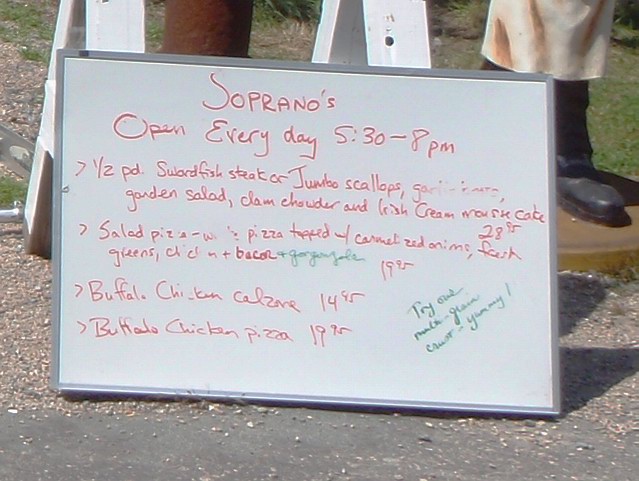 SOPRANO's
Open Every day 5:30-8pm
> 1/2 pd. Swordfish steak or Jumbo scallops,
garden salad, clam chowder and Irish Cream mousse cake
28.95
> Salad pizza - pizza topped w/ carmelized onions, fresh
greens, + bacon + gorgonzola 19.95
> Buffalo Chicken calzone 14.95
> Buffalo Chicken pizza 19.95
Try our
multi-grain
crust - yummy!